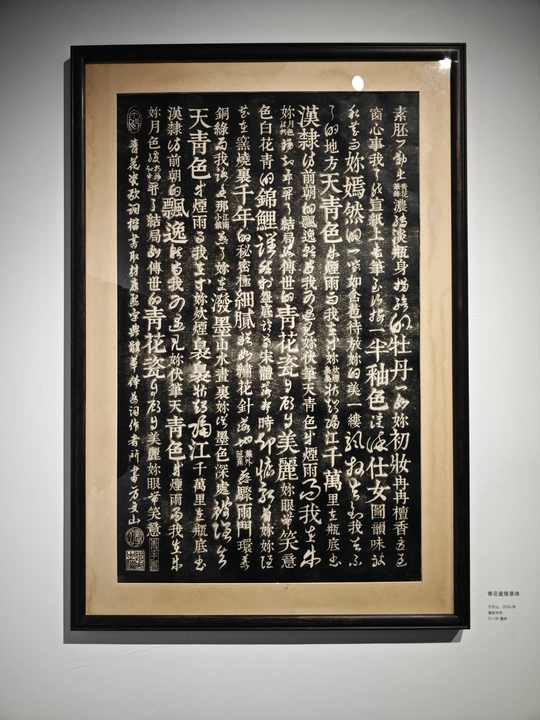 素胚勾勒出青花筆鋒濃轉淡瓶身描繪的牡丹一如妳初妝冉冉檀香透過
窗心事我了然宣紙上走筆至此擱一半釉色渲染仕女圖韻味被
私藏而妳嫣然的一笑如含苞待放妳的美一縷飄散去到我去不
了的地方天青色等煙雨而我在等妳炊煙裊裊昇起隔江千萬里在瓶底書
漢隸仿前朝的飄逸就當我為遇見妳伏筆天青色等煙雨而我在等
妳月色被打撈起暈開了結局如傳世的青花瓷自顧自美麗妳眼帶笑意
色白花青的錦鯉躍然於碗底臨摹宋體落款時卻惦記著妳妳隱
藏在窯燒裏千年的秘密極細膩猶如繡花針落地簾外芭蕉惹驟雨門環惹
銅綠而我路過那江南小鎮惹了妳在潑墨山水畫裏妳從墨色深處被隱去
天青色等煙雨而我在等妳炊煙裊裊昇起隔江千萬里在瓶底書
漢隸仿前朝的飄逸就當我為遇見妳伏筆天青色等煙雨而我在等
妳月色被打撈起暈開了結局如傳世的青花瓷自顧自美麗妳眼帶笑意
青花瓷歌詞楷書取材康熙字典體草體為詞作者所書方文山
青花瓷楷草体
方文山，2016年